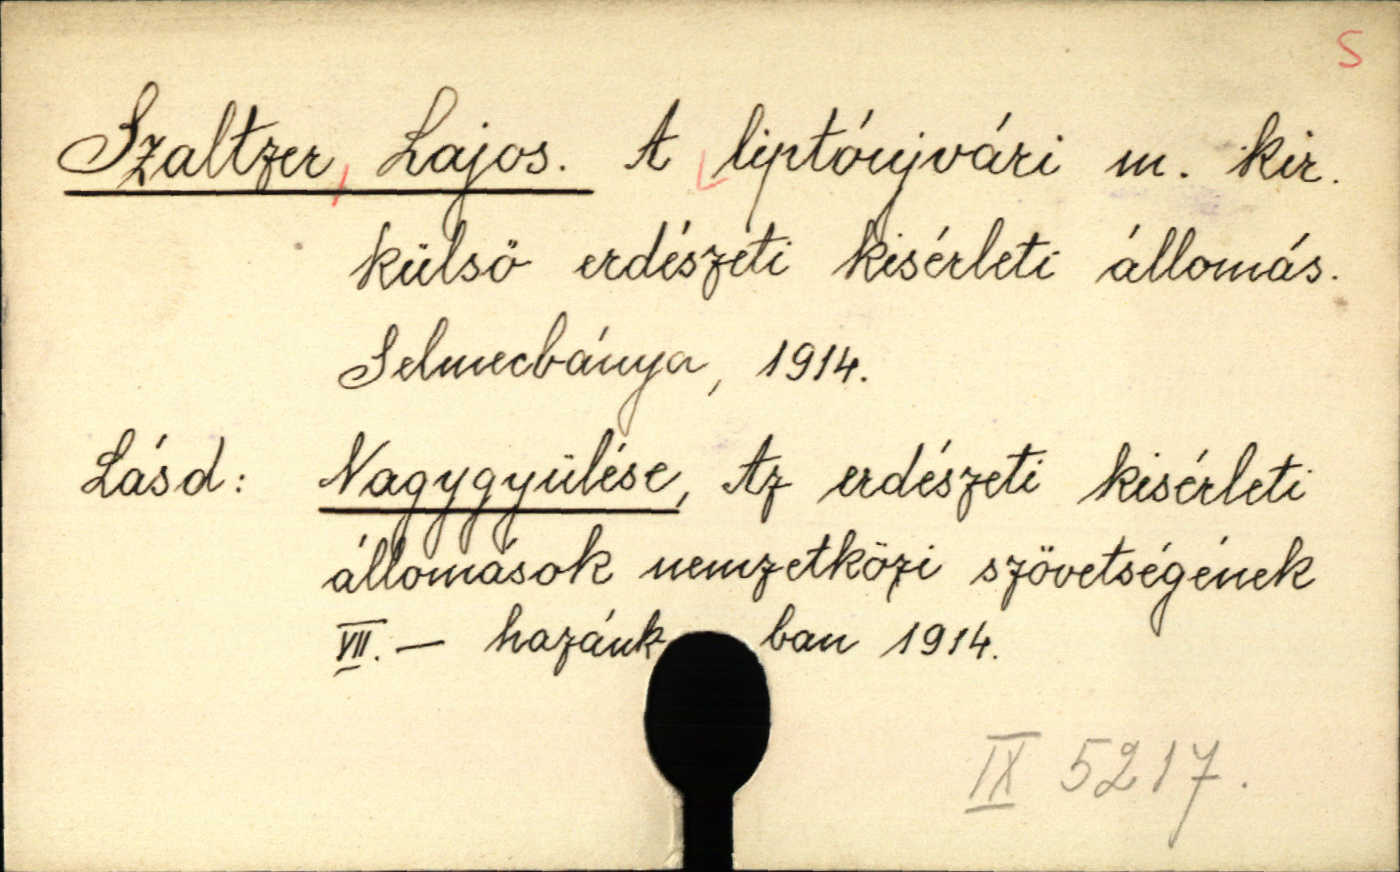 S
Szaltzer, Lajos. A liptóujvári m. kir.
külső erdészeti kisérleti állomás.
Selmecbánya, 1914.
Lásd: Nagygyülése, Az erdészeti kisérleti
állomások nemzetközi szövetségének
VII. — hazánkban 1914.
IX 5217.